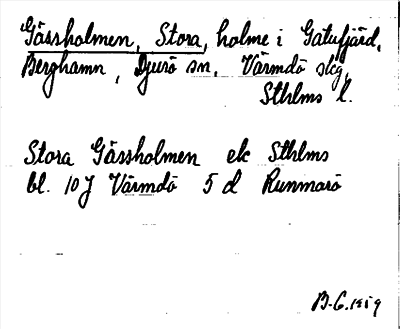 Gässholmen, Stora, holme i Gatufjärd,
Berghamn, Djurö sn, Värmdö skg,
Sthlms l.
Stora Gässholmen ek Sthlms
bl. 10J Värmdö 5 d Runmarö